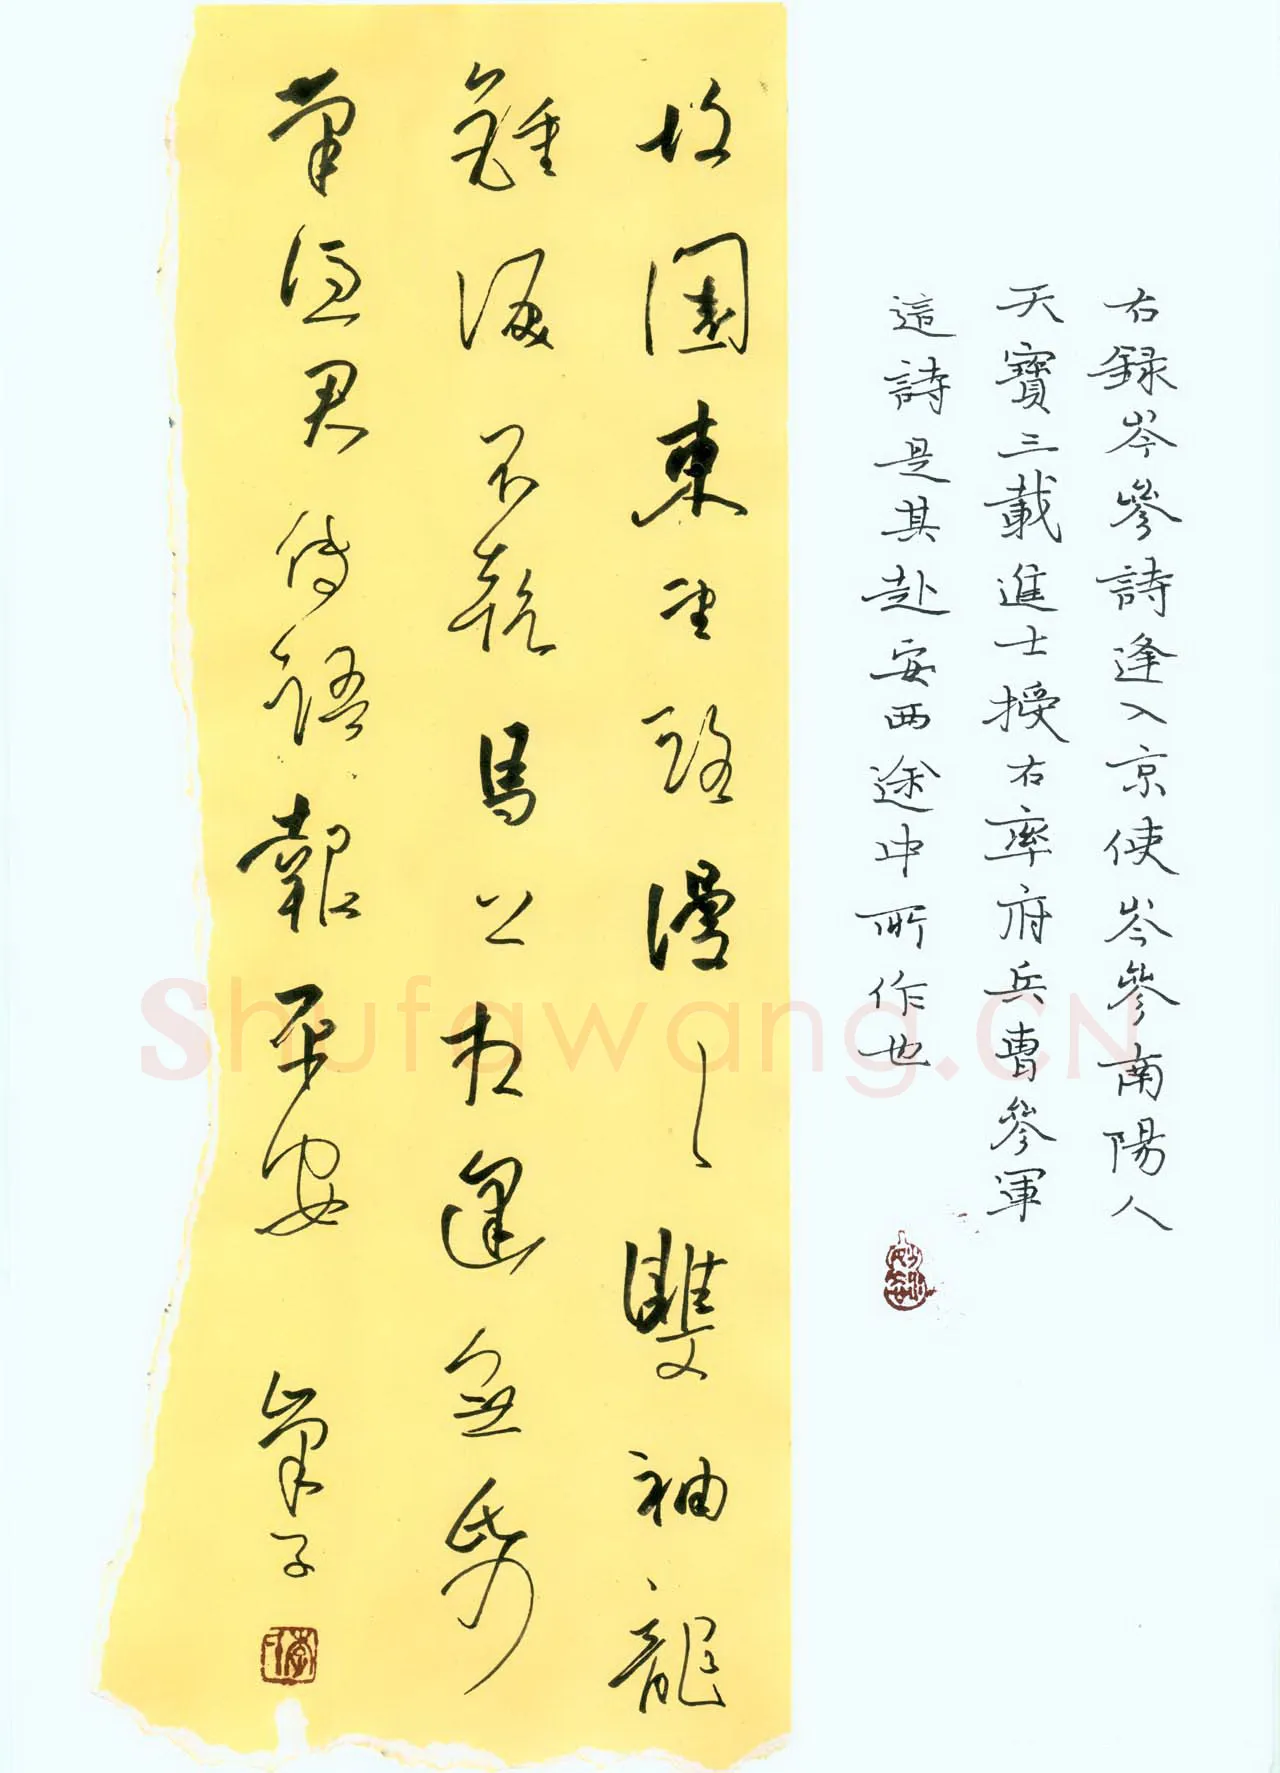 故園東望路漫〻雙袖龍
鍾淚不乾馬上相逢無紙
筆憑君傳語報平安
右録岑參詩逢入京使岑參南陽人
天寶三載進士授右率府兵曹參軍
這詩是其赴安西途中所作也
Shufawang.CN